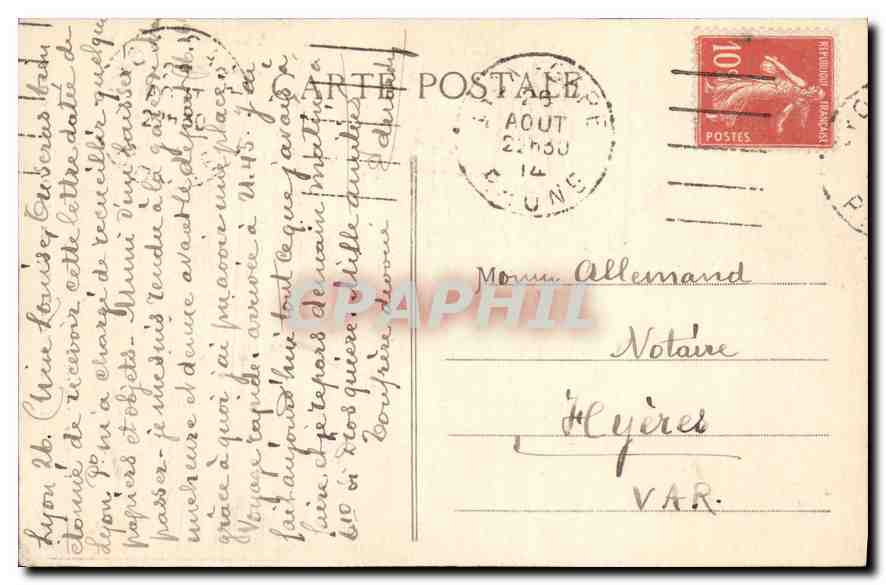 CARTE POSTALE
Lyon 26. Mon Louis, Tu seras bien
étonné de recevoir cette lettre datée de
Lyon. P. m'a chargé de recueillir quelques
papiers et objets - Muni d'un laisser
passer - je me suis rendu à la gare
une heure et demie avant le départ
grâce à quoi j'ai pu avoir une place.
Voyage rapide. arrivée à 21.45. J'ai
fait aujourd'hui tout ce que j'avais à
faire, et je repars demain matin à
6 10
Ton frère dévoué
AOUT
22H30
14
RHONE
10c
REPUBLIQUE FRANÇAISE
POSTES
Allemand
Notaire
Hyères
VAR.
CPAPHIL